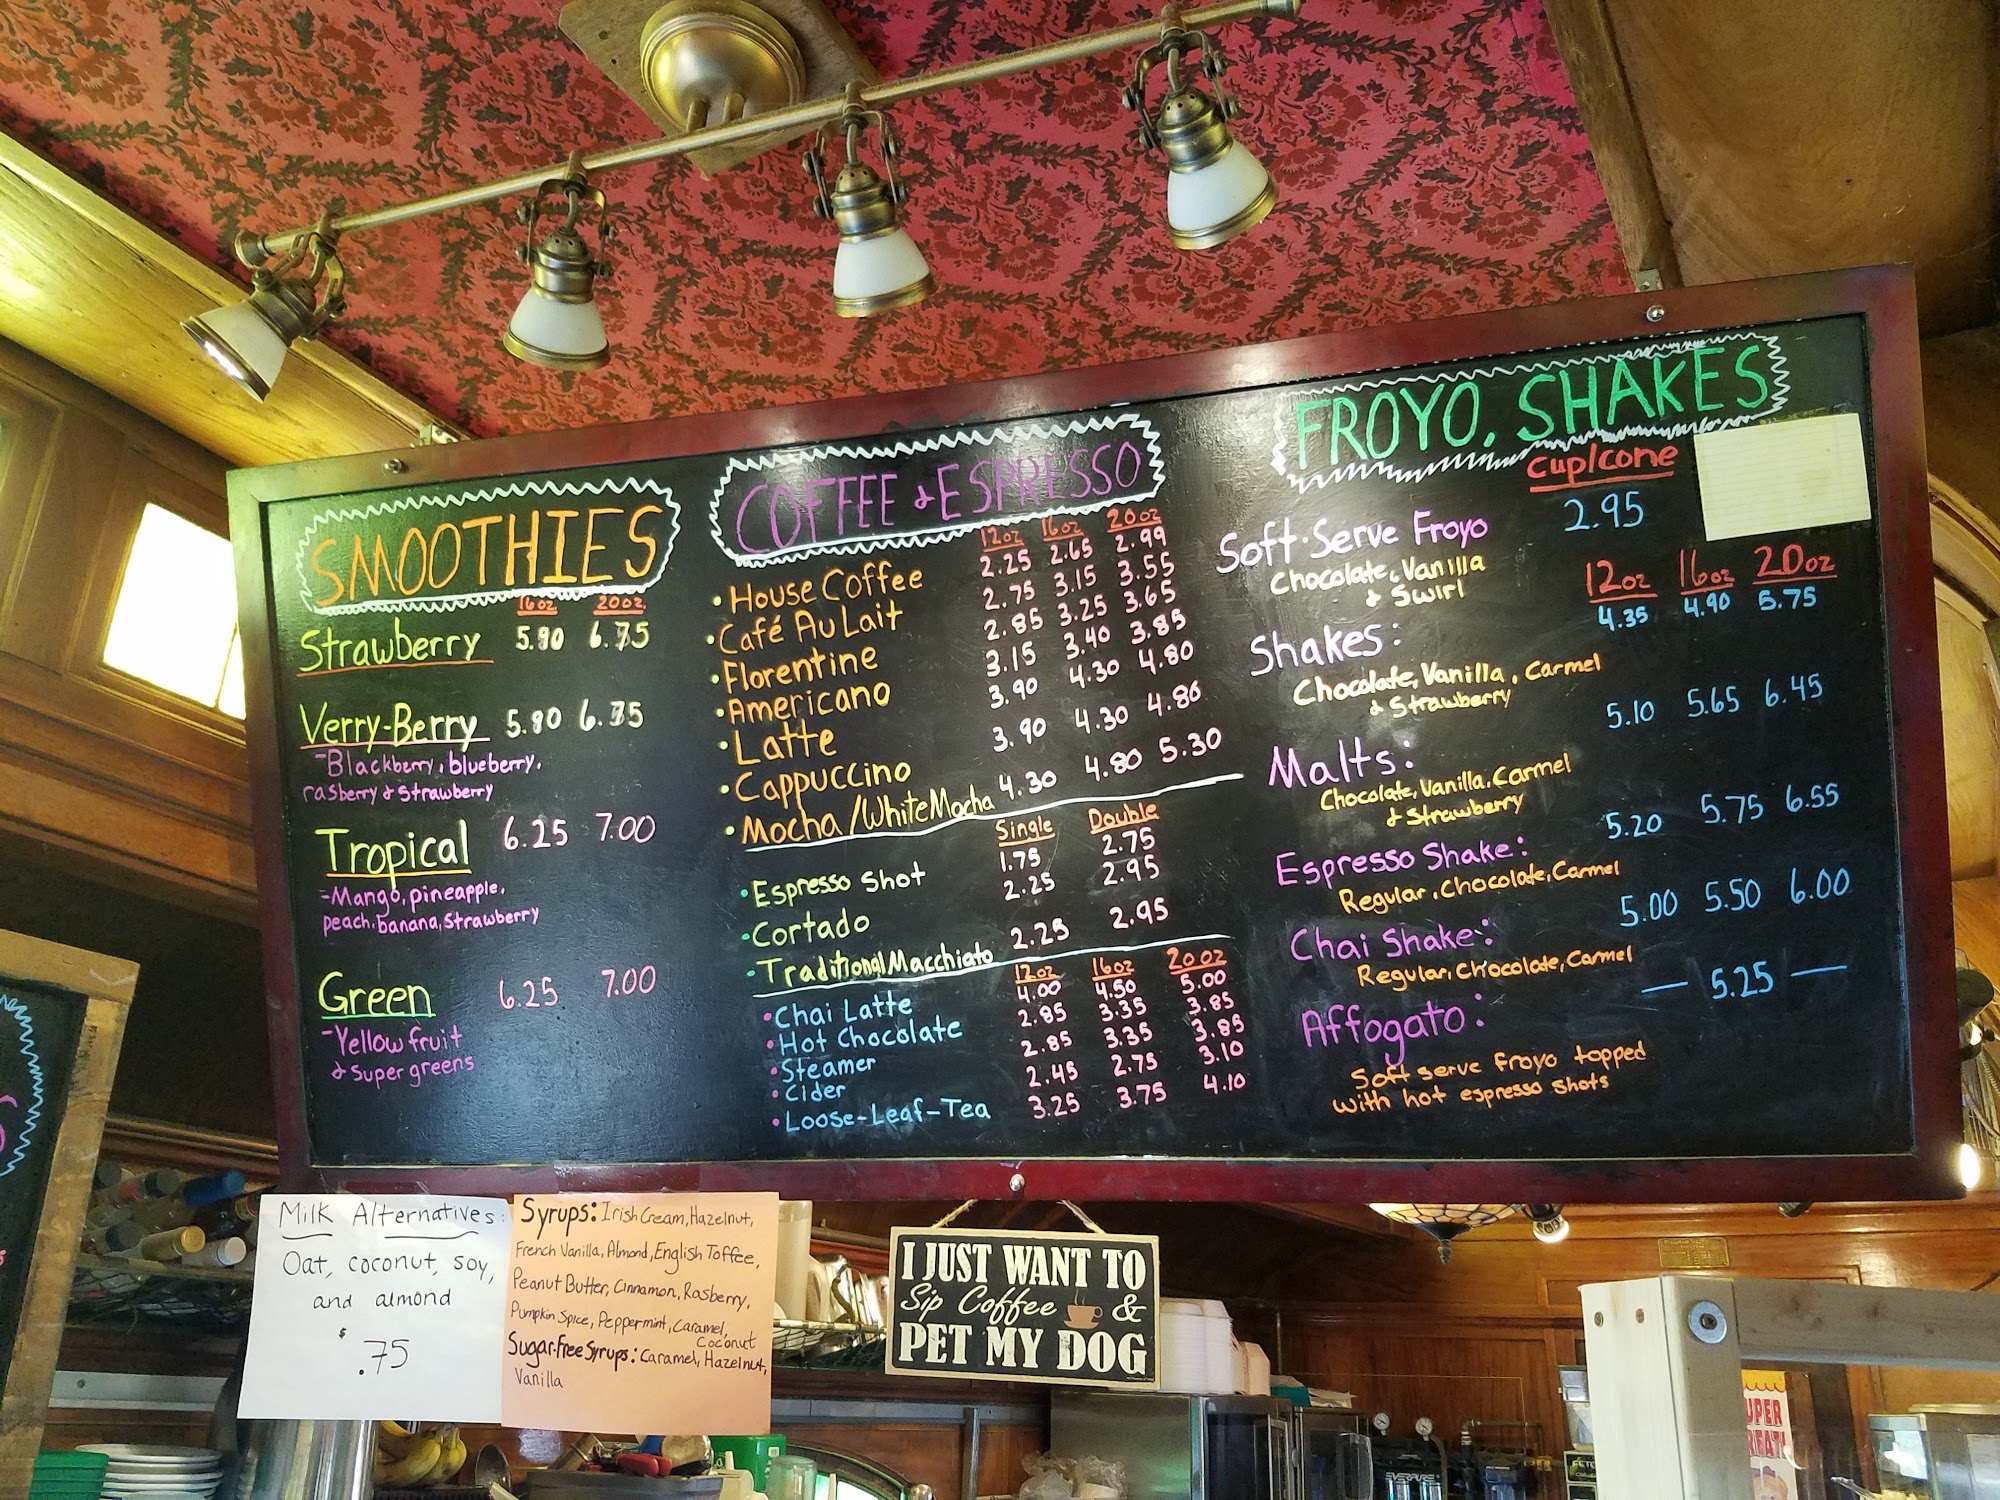 SMOOTHIES
16oz 20oz
Strawberry 5.90 6.75
Verry-Berry 5.90 6.75
-Blackberry, blueberry,
rasberry & strawberry
Tropical 6.25 7.00
-Mango, pineapple,
peach, banana, strawberry
Green 6.25 7.00
-Yellow fruit
& super greens
COFFEE & ESPRESSO
12oz 16oz 20oz
• House Coffee 2.25 2.65 2.99
• Café Au Lait 2.75 3.15 3.55
• Florentine 2.85 3.25 3.65
• Americano 3.15 3.40 3.85
• Latte 3.90 4.30 4.80
• Cappuccino 3.90 4.30 4.80
• Mocha/White Mocha 4.30 4.80 5.30
Single Double
• Espresso Shot 1.75 2.75
• Cortado 2.25 2.95
• Traditional Macchiato 2.25 2.95
12oz 16oz 20oz
• Chai Latte 4.00 4.50 5.00
• Hot Chocolate 2.85 3.35 3.85
• Steamer 2.85 3.35 3.85
• Cider 2.45 2.75 3.10
• Loose-Leaf-Tea 3.25 3.75 4.10
FROYO, SHAKES
cup/cone
Soft-Serve Froyo 2.95
Chocolate, Vanilla
& Swirl
12oz 16oz 20oz
Shakes: 4.35 4.90 5.75
Chocolate, Vanilla, Carmel
& Strawberry
Malts: 5.10 5.65 6.45
Chocolate, Vanilla, Carmel
& Strawberry
Espresso Shake: 5.20 5.75 6.55
Regular, Chocolate, Carmel
Chai Shake: 5.00 5.50 6.00
Regular, Chocolate, Carmel
Affogato: — 5.25 —
Soft serve Froyo topped
with hot espresso shots
Milk Alternatives:
Oat, coconut, soy,
and almond
$.75
Syrups: Irish Cream, Hazelnut,
French Vanilla, Almond, English Toffee,
Peanut Butter, Cinnamon, Rasberry,
Pumpkin Spice, Peppermint, Caramel,
Coconut
Sugar-Free Syrups: Caramel, Hazelnut,
Vanilla
I JUST WANT TO
Sip Coffee &
PET MY DOG
UPER
EVERPURE